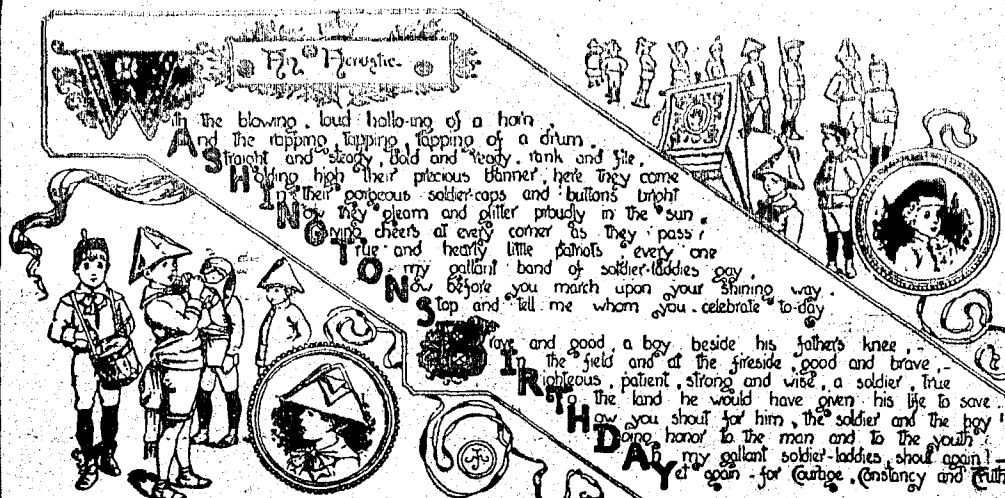 An Acrostic.
With the blowing, loud hallo-ing of a horn,
And the rapping, tapping, tapping of a drum,
Straight and steady, bold and ready, rank and file,
Holding high their precious banner, here they come
In their gorgeous soldier-caps and buttons bright
Now they gleam and glitter proudly in the sun,
Giving cheers at every corner as they pass;
True and hearty little patriots every one
O my gallant band of soldier-laddies gay,
Now before you march upon your shining way,
Stop and tell me whom you celebrate to-day
Brave and good, a boy beside his father's knee,
In the field and at the fireside, good and brave,-
Righteous, patient, strong and wise, a soldier, true
To the land he would have given his life to save;
How you shout for him, the soldier and the boy!
Doing honor to the man and to the youth!
Ah, my gallant soldier-laddies, shout again!-
Yet again-for Courage, Constancy and Truth